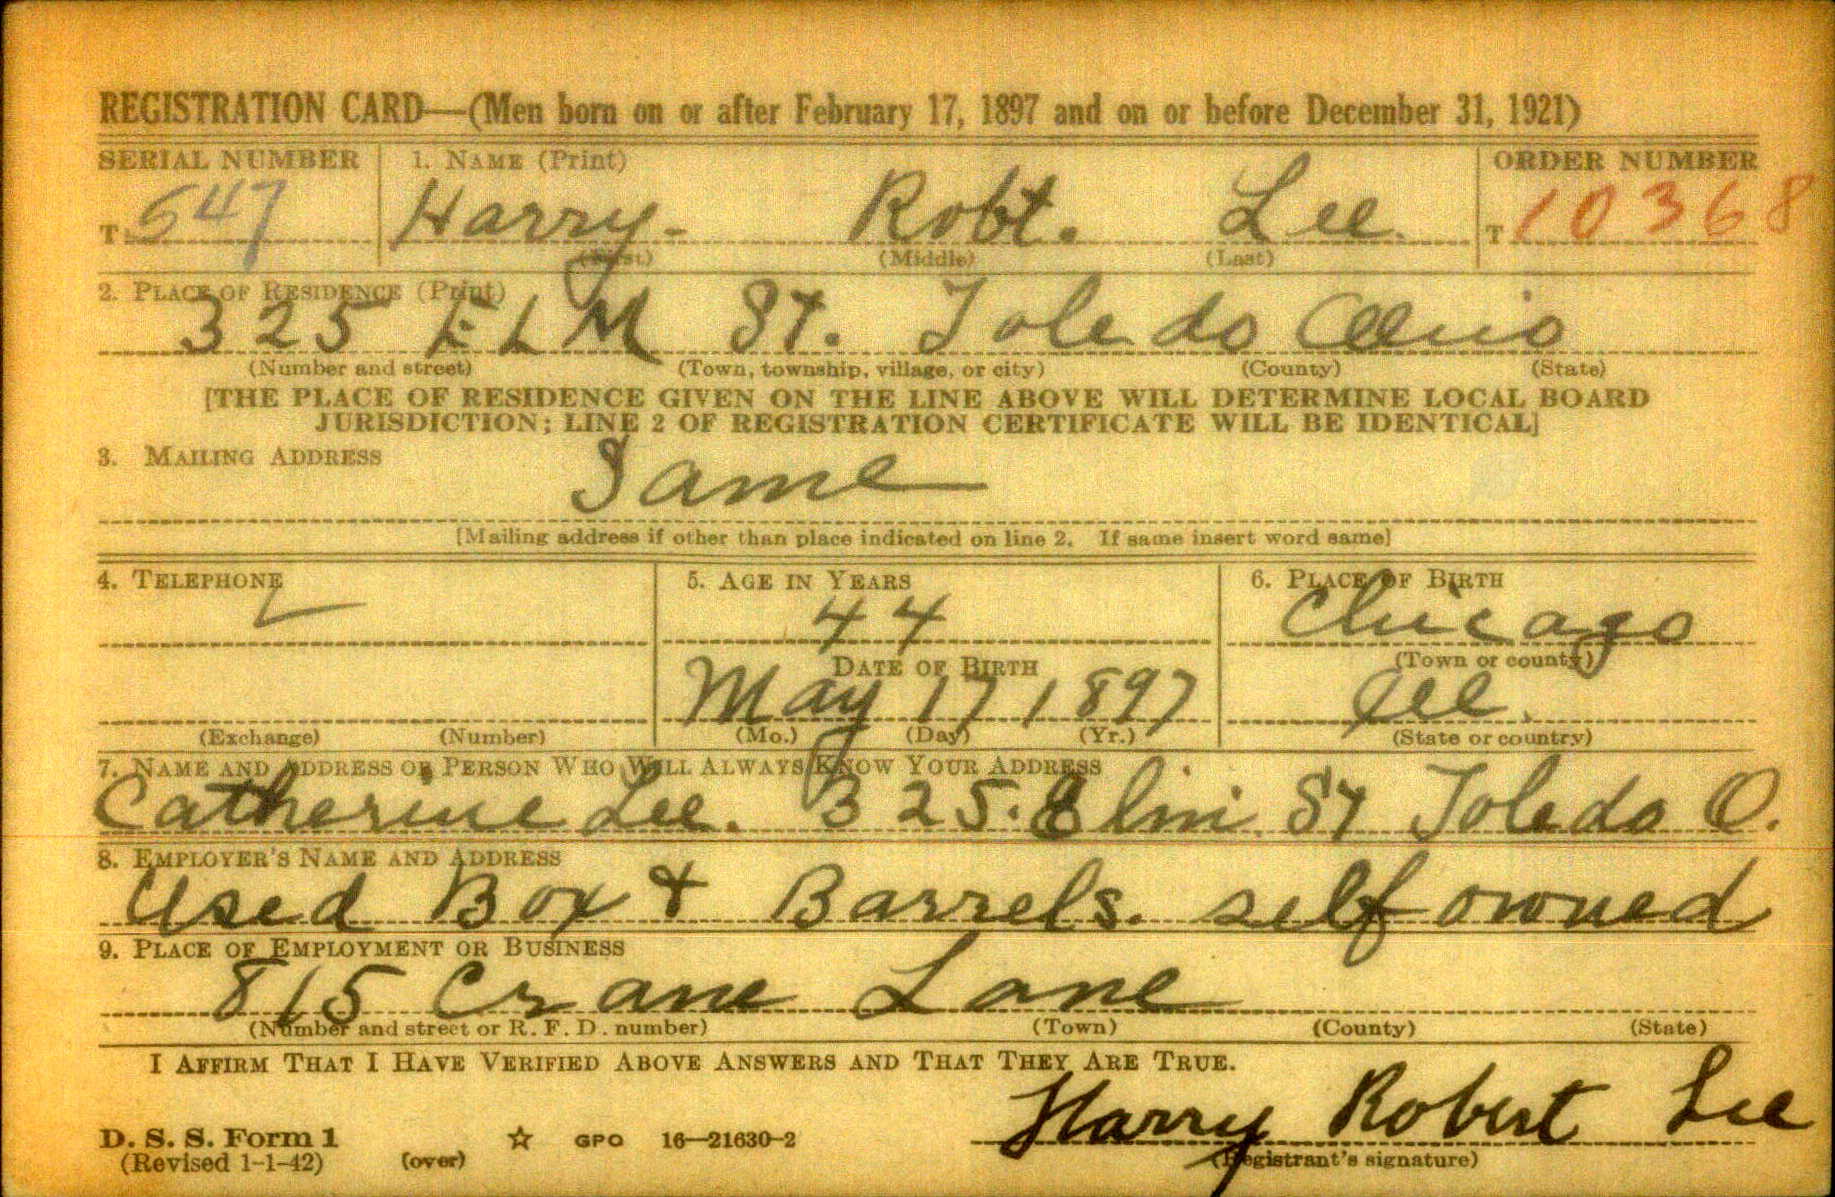 REGISTRATION CARD—(Men born on or after February 17, 1897 and on or before December 31, 1921)
SERIAL NUMBER 1. NAME (Print) ORDER NUMBER
T 547 Harry Robt. Lee T 10368
(First) (Middle) (Last)
2. PLACE OF RESIDENCE (Print)
325 ELM St. Toledo Ohio
(Number and street) (Town, township, village, or city) (County) (State)
[THE PLACE OF RESIDENCE GIVEN ON THE LINE ABOVE WILL DETERMINE LOCAL BOARD
JURISDICTION; LINE 2 OF REGISTRATION CERTIFICATE WILL BE IDENTICAL]
3. MAILING ADDRESS
Same
[Mailing address if other than place indicated on line 2. If same insert word same]
4. TELEPHONE 5. AGE IN YEARS 6. PLACE OF BIRTH
44 Chicago
DATE OF BIRTH (Town or county)
May 17 1897 Ill.
(Exchange) (Number) (Mo.) (Day) (Yr.) (State or country)
7. NAME AND ADDRESS OF PERSON WHO WILL ALWAYS KNOW YOUR ADDRESS
Catherine Lee. 325. Elm St Toledo O.
8. EMPLOYER'S NAME AND ADDRESS
Used Box & Barrels. self owned
9. PLACE OF EMPLOYMENT OR BUSINESS
815 Crane Lane
(Number and street or R. F. D. number) (Town) (County) (State)
I AFFIRM THAT I HAVE VERIFIED ABOVE ANSWERS AND THAT THEY ARE TRUE.
Harry Robert Lee
D. S. S. Form 1 ☆ GPO 16—21630-2
(Revised 1-1-42) (over) (Registrant's signature)